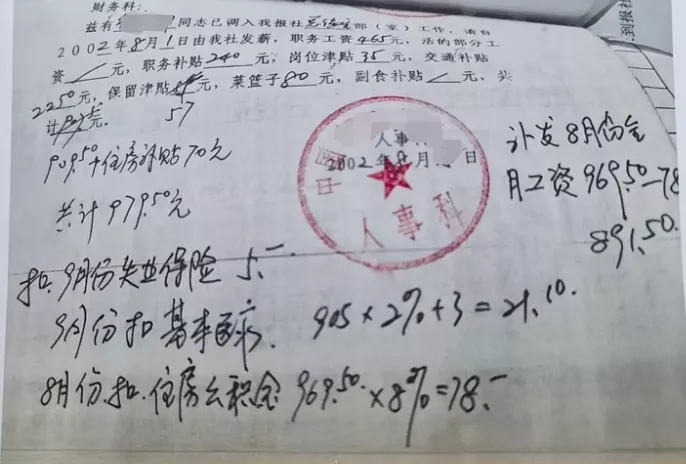 财务科:
兹有 同志已调入我报社 部(室)工作,请自
2002年8月1日由我社发薪,职务工资465元,活的部分工
资/元,职务补贴240元,岗位津贴35元,交通补贴
22.50元,保留津贴 元,菜篮子80元,副食补贴/元,共
57
计 元.
人事
2002年8月 日
人事科
909.50+住房补贴70元
共计979.50元
补发8月份全
月工资969.50-78
891.50.
扣.9月份失业保险 5.-
9月份扣基本医疗. 905×2%+3=21.10.
8月份.扣.住房公积金 969.50×8%=78.-
到报社